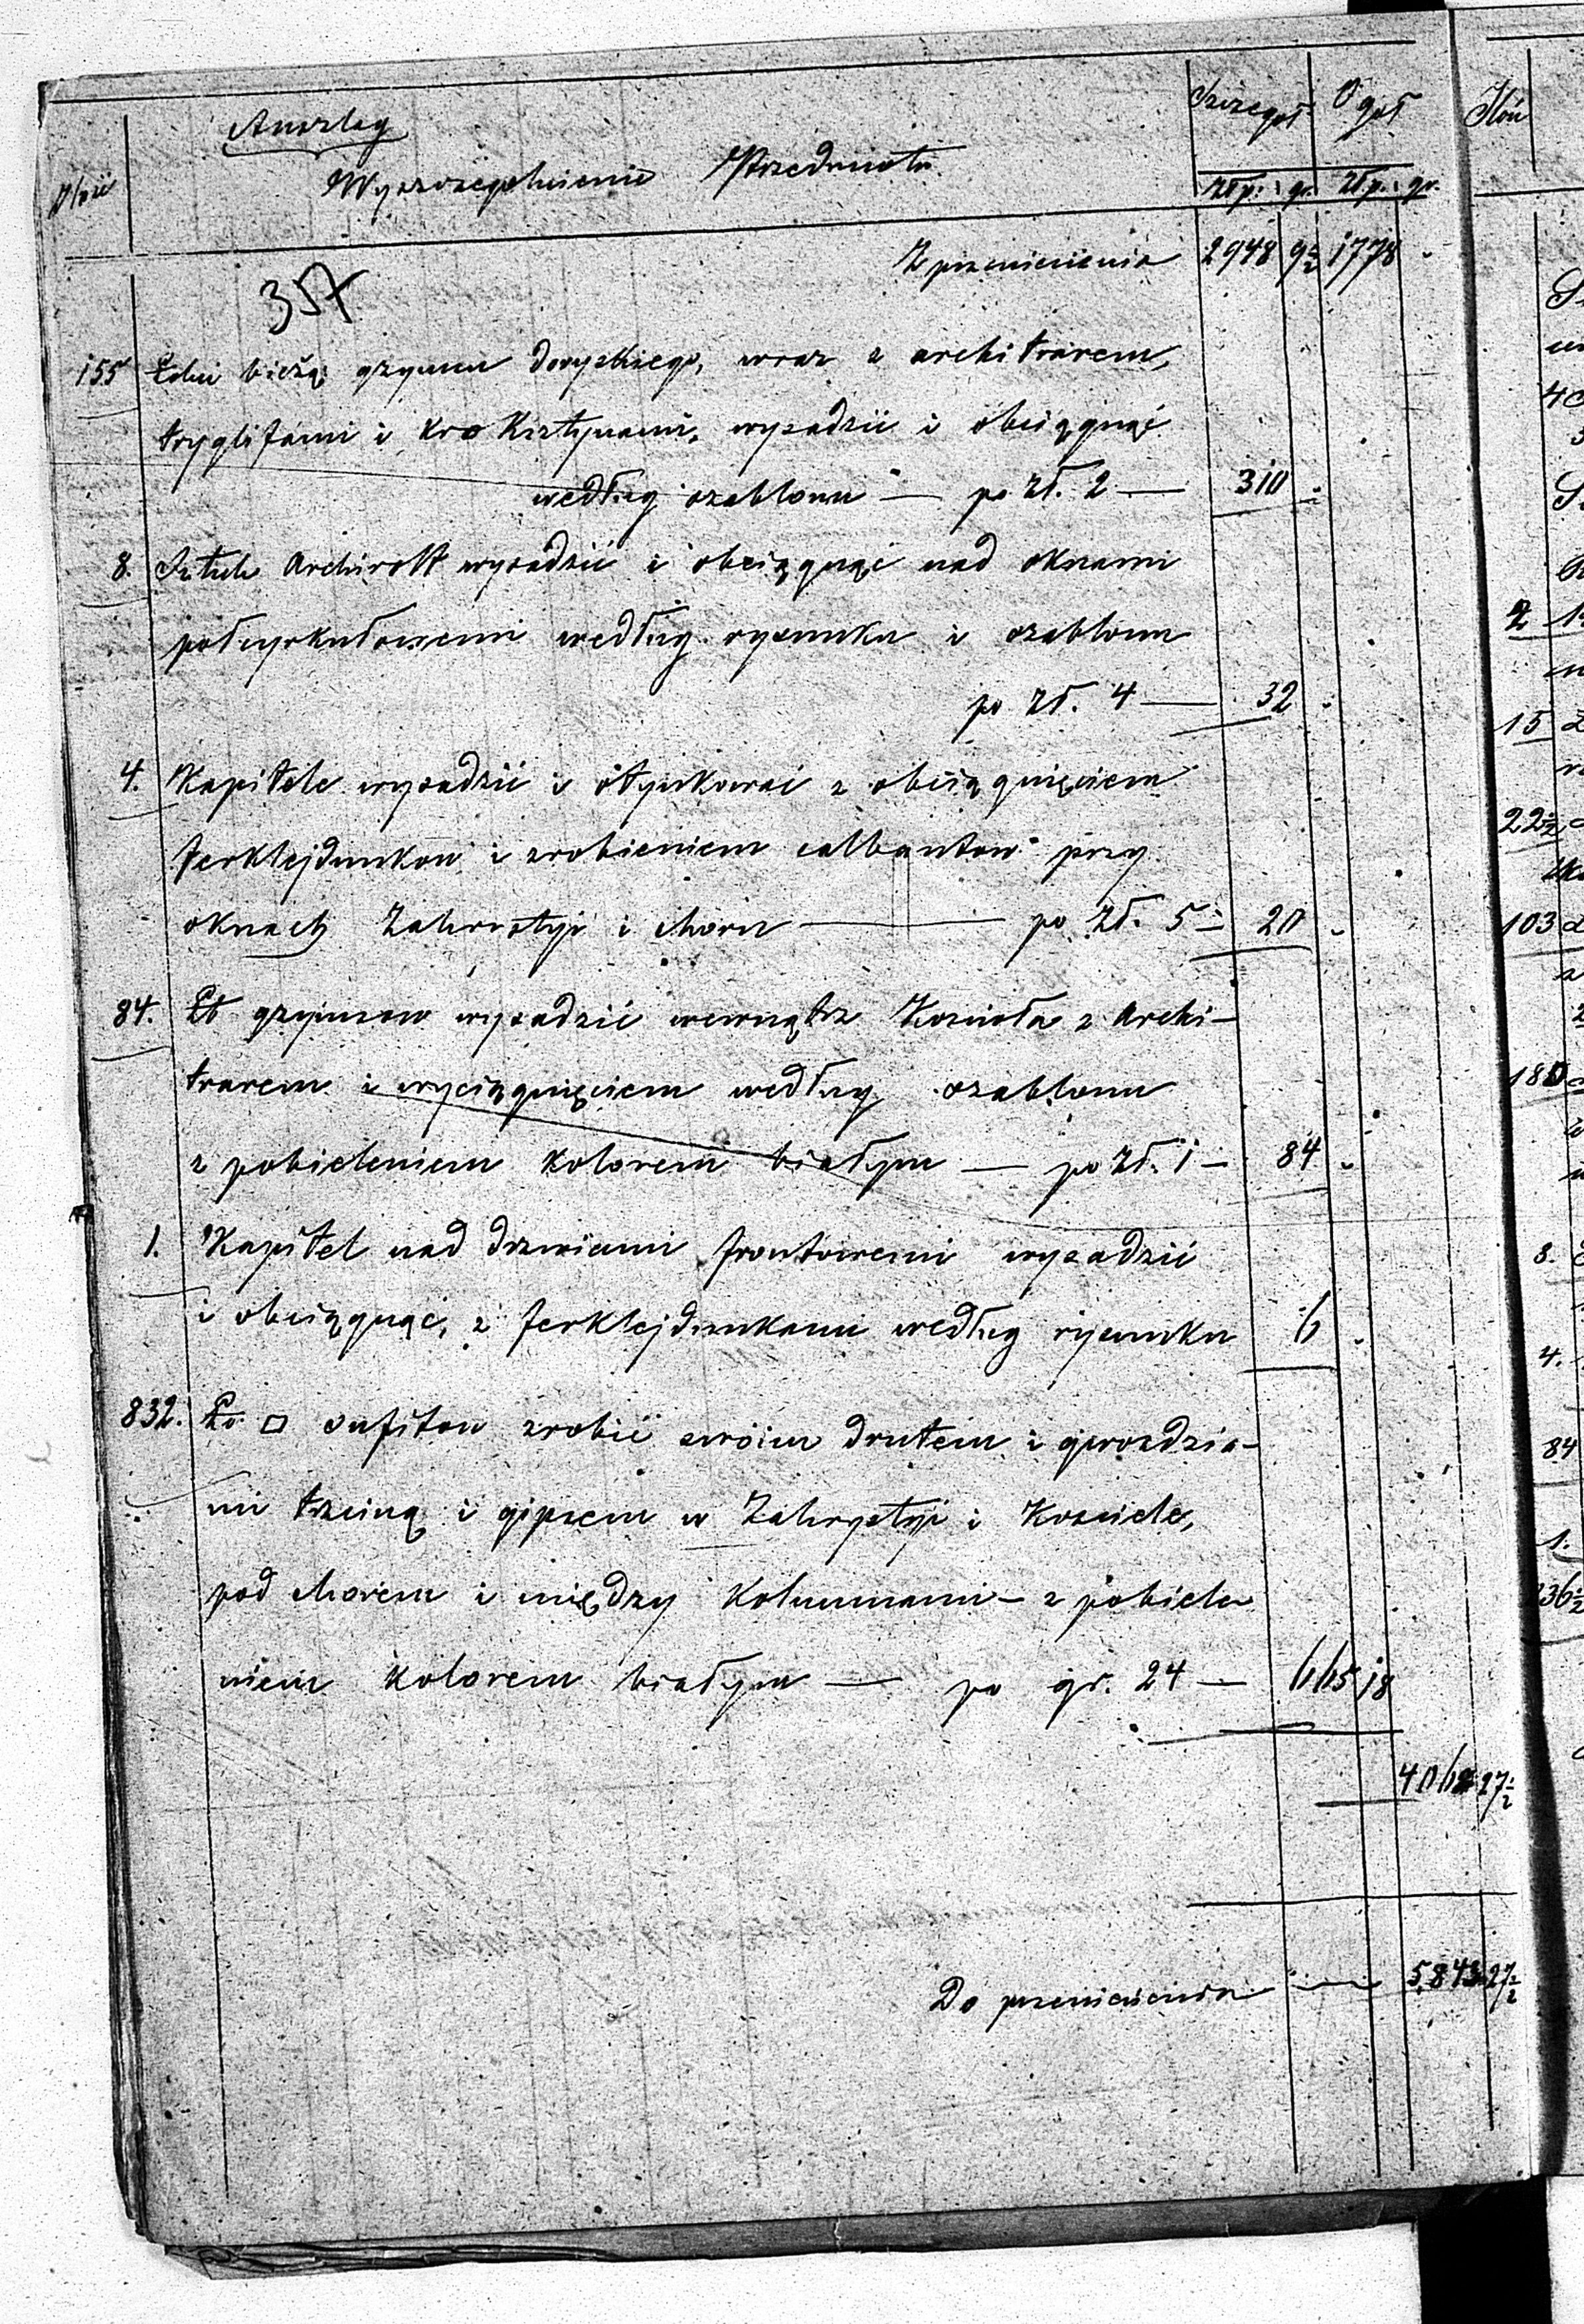 Anszlag
Szczegół Ogół
Ilość Wyszczególnienie Przedmiotu
złp. gr. złp. gr.
Z przeniesienia 2948 9½ 1778 -
357
155 Łokci bieżą: gzymsu doryckiego, wraz z architravem,
tryglifami i kroksztynami, wysadzić i obciągnąć
według szablonu — po Zł. 2 — 310 -
8. Sztuk Archivolt wysadzić i obciągnąć nad oknami
półcyrkułowemi według rysunku i szablonu
po Zł. 4 — 32 -
4. Kapitele wysadzić i otynkować z obciągnięciem
ferklejdunków i zrobieniem
przy
oknach Zakrystyi i Choru — po Zł. 5 — 20 -
84. Łł gzymsów wysadzić wewnątrz Kościoła z Archi-
travem i wyciągnięciem według szablonu
z pobieleniem kolorem białym — po Zł. 1 — 84 -
1. Kapitel nad drzwiami frontowemi wysadzić
i obciągnąć, z ferklejdunkami według rysunku 6 -
832. Ło: □ sufitów zrobić swoim drutem i gwoździa-
mi trzciną i gipsem w Zakrystyi i Kościele,
pod Chorem i między Kolumnami - z pobiele-
niem kolorem białym — po gr. 24 — 665 18
4065 27½
Do przeniesienia — 5843 27½